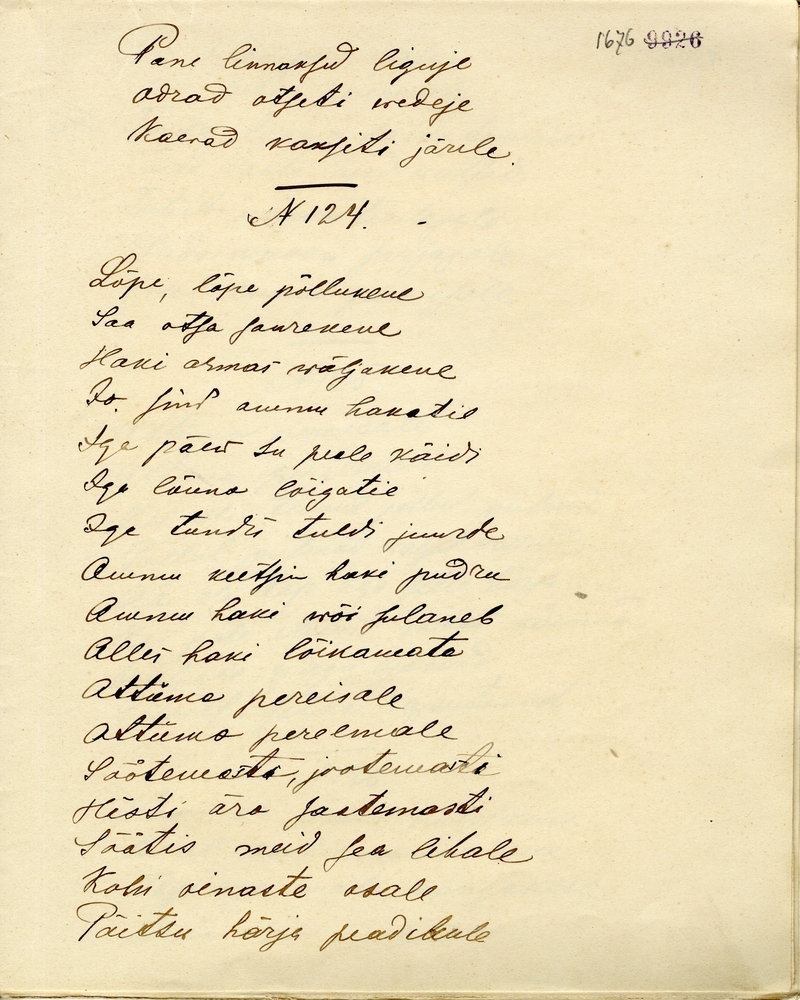 1676 9926
Pane linnaksed liguje
odrad otseti wedeje
Kaerad kaksiti järele.
N 124.
Lõpe, lõpe põllukene
Saa otsa saarekene
Haki armas wäljakene
Jo. sind ammu hakatie
Iga päew su peale käidi
Iga lõuna lõigatie
Iga tundis tuldi juurde
Ammu keetsin haki pudru
Ammu haki wõi sulaneb
Alles haki lõikamata
Attümo pereisale
attümo pereemale
Söötemasta, jootemasti
Hästi ära saatemasti
Söötis meid sea lihale
Kohi oinaste osale
Päitsu härja peadikule